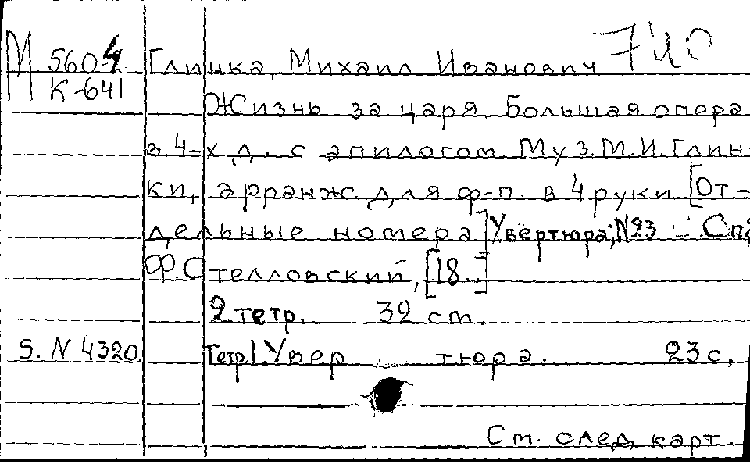 М 560-4 Глинка, Михаил Иванович 740
К-641
Жизнь за царя. Большая опера
в 4-х д. с эпилогом. Муз. М. И. Глин-
ки, арранж. для ф-п. в 4 руки [От-
дельные номера] Увертюра; №23 - Спб
Ф. Стелловский, [18..]
2 тетр. 32 см.
S. N 4320. Тетр 1. Увертюра. 23 с.
См. след. карт.